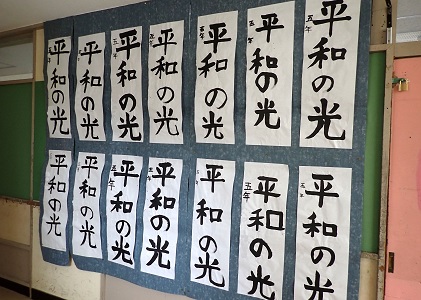 平和の光
五年
平和の光
五年
平和の光
五年
平和の光
五年
平和の光
五年
平和の光
五年
平和の光
五年
平和の光
平和の光
平和の光
五年
平和の光
五年
平和の光
平和の光
五年
平和の光